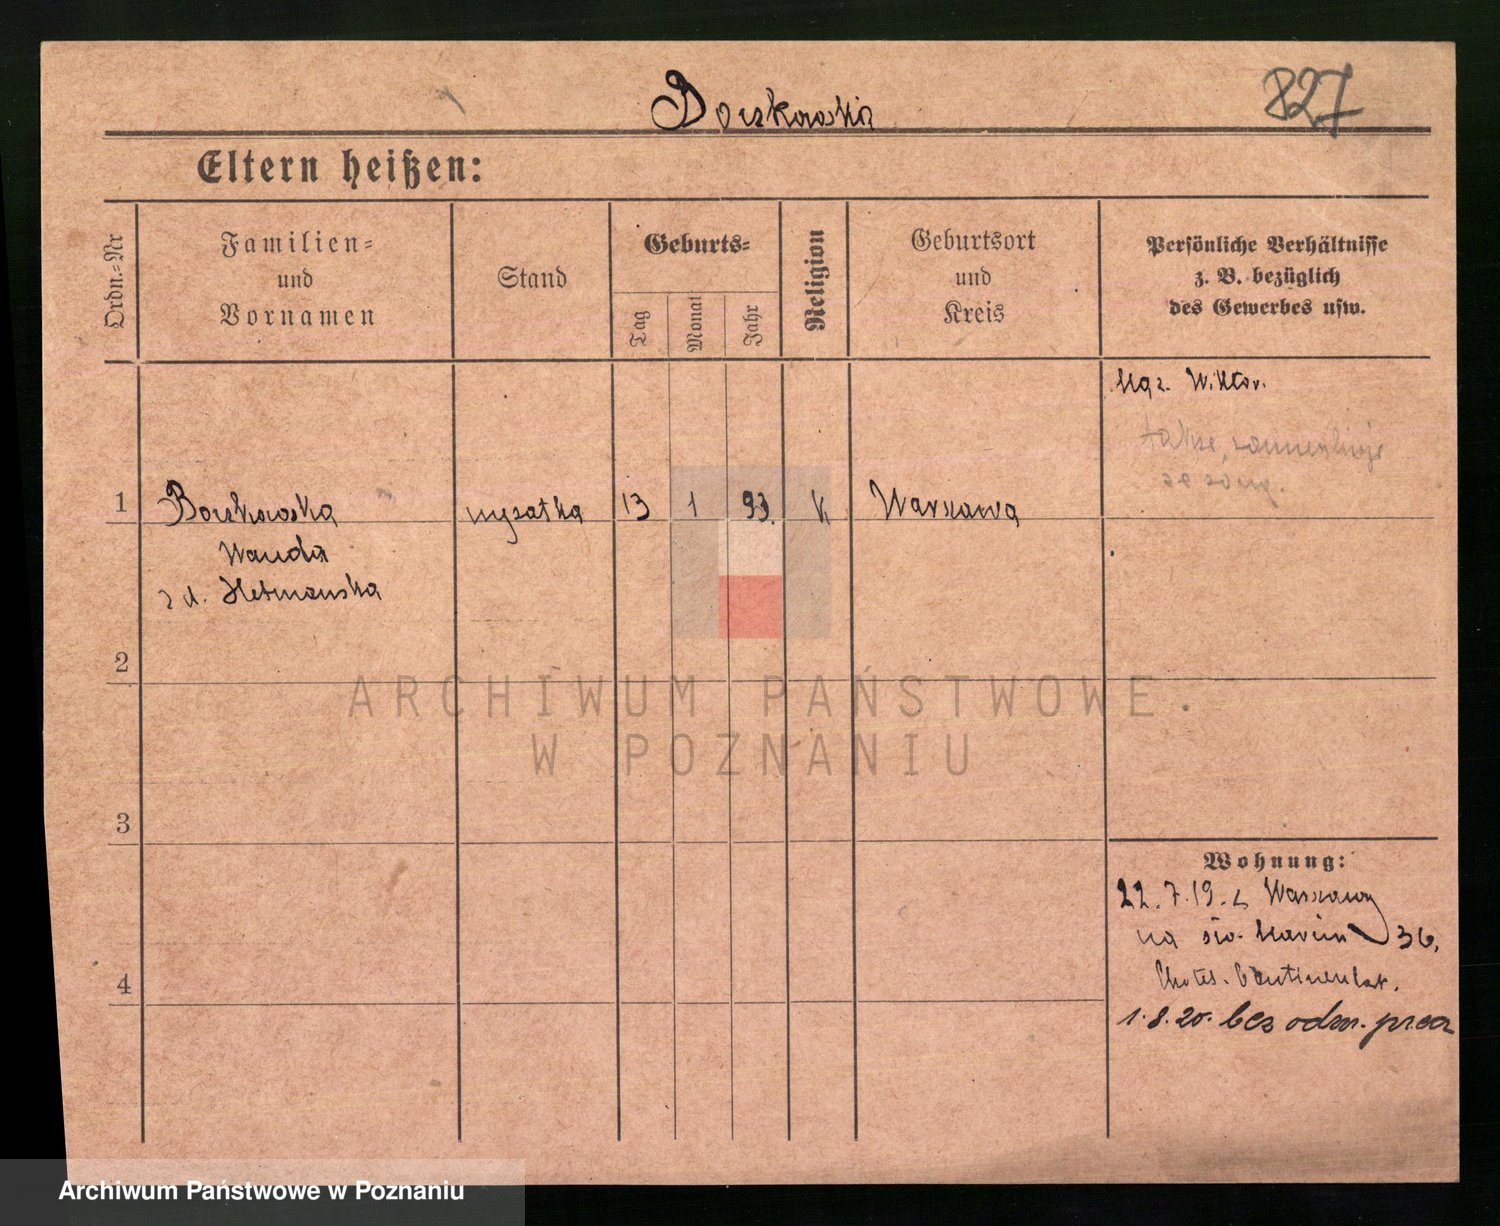 Borzkowska
827
Eltern heißen:
Ordn.-Nr
Familien-
und
Vornamen
Stand
Geburts-
Tag
Monat
Jahr
Religion
Geburtsort
und
Kreis
Persönliche Verhältnisse
z. B. bezüglich
des Gewerbes usw.
Wiktor.
1 Borzkowska 13 1 93. K Warszawa
Wanda
z d. Hetmańska
2
3
4
Wohnung:
22.7.19. z Warszawy
na św. Marcin 36,
1.8.20. bez odm.
ARCHIWUM PAŃSTWOWE
W POZNANIU
Archiwum Państwowe w Poznaniu